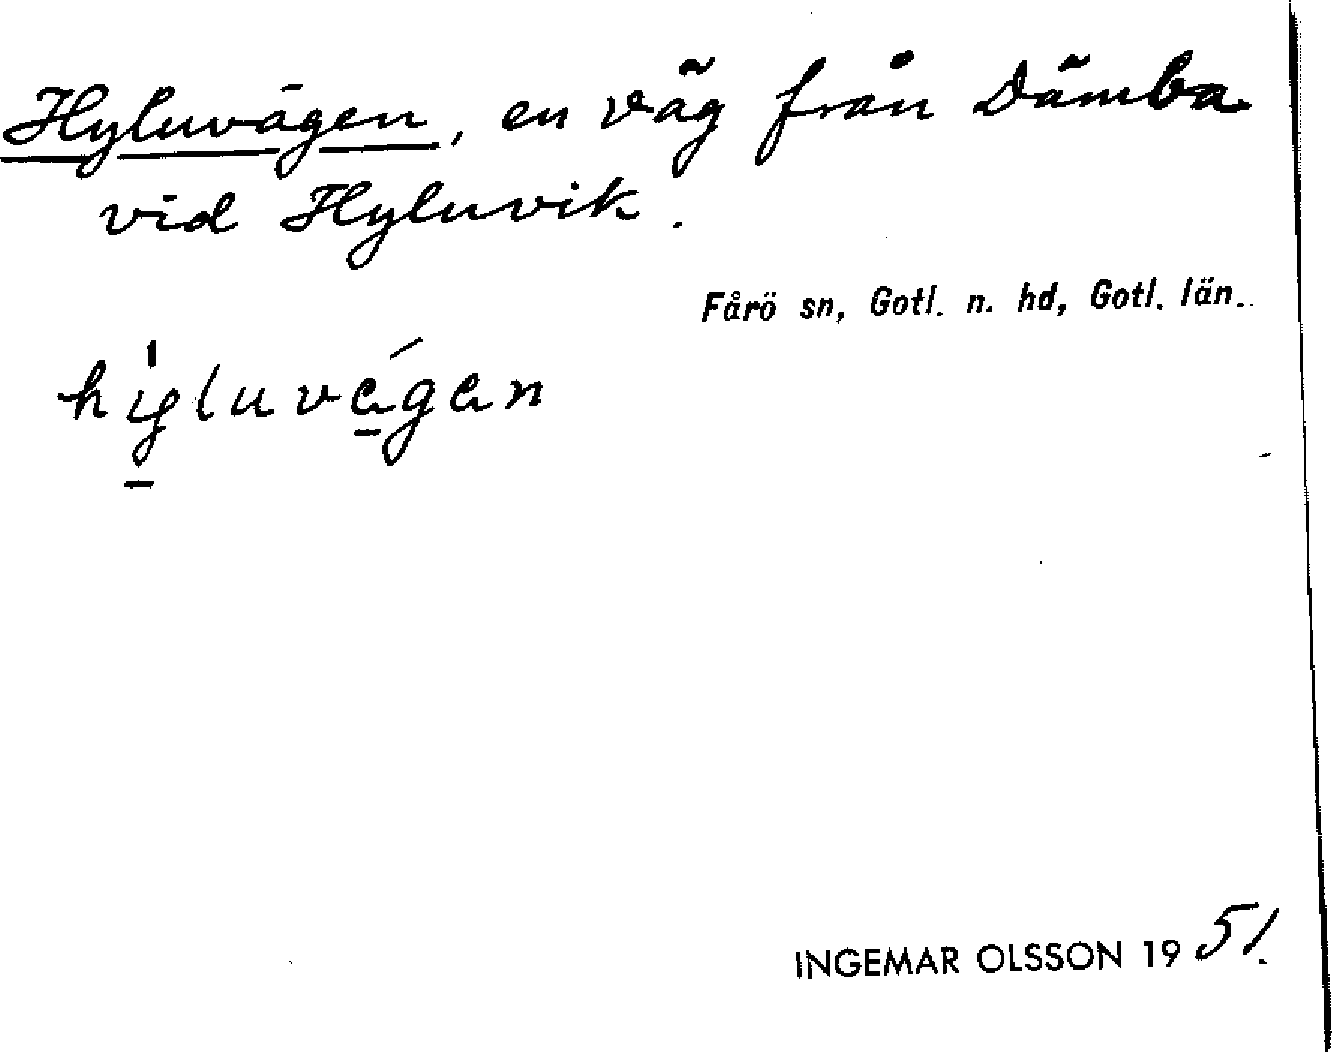 Hyluvägen, en väg från Dämba
vid Hyluvik.
Fårö sn, Gotl. n. hd, Gotl. län.
INGEMAR OLSSON 1951.